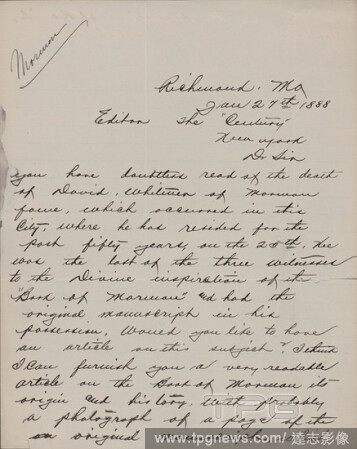 Mormon
Richmond. Mo
Jan 27th 1888
Editor The "Century"
New York
Dr Sir
You have doubtless read of the death
of David. Whitmer of Mormon
fame, which occurred in this
City, where he has resided for the
past fifty years, on the 25th. He
was the last of the three witnesses
to the Divine inspiration of the
"Book of Mormon" and had the
original manuscript in his
possession. Would you like to have
an article on this subject? I think
I can furnish you a very readable
article on the Book of Mormon its
origin and history. With probably
a photograph of a page of the
original
TPG
www.tpgnews.com/達志影像